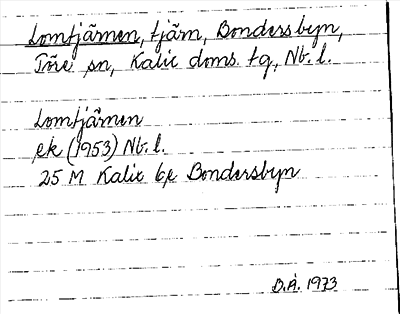 Lomtjärnen, tjärn, Bondersbyn,
Töre sn, Kalix doms. tg, Nb. l.
Lomtjärnen
ek (1953) Nb. l.
25 M Kalix bl Bondersbyn
B.Å. 1973